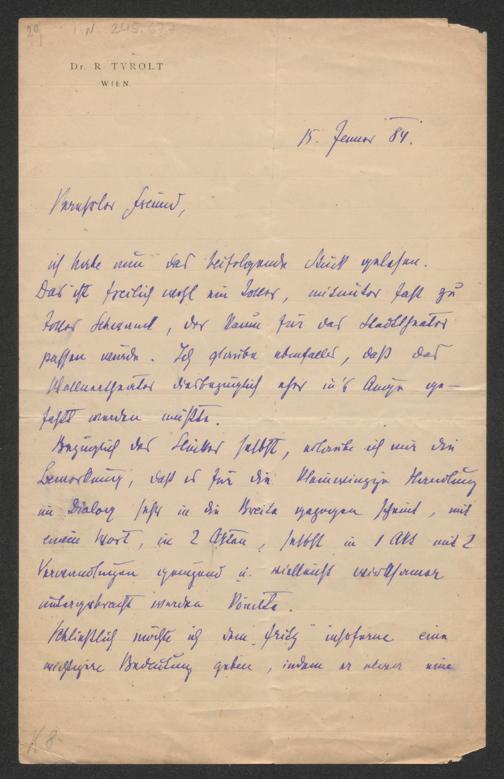 I. N. 245.677
Dr. R. TYROLT
WIEN.
15. Januar 84.
Verehrter Freund,
ich habe nun das beifolgende Stück gelesen.
Das ist freilich wohl ein toller, mitunter fast zu
toller Schwank, der kaum für das Stadttheater
passen würde. Ich glaube ebenfalls, daß das
Wallnertheater diesbezüglich eher in's Auge ge-
faßt werden müßte.
Bezüglich des Stückes selbst, erlaube ich mir die
Bemerkung, daß es für die kleinwinzige Handlung
im Dialog sehr in die Breite gezogen scheint, mit
einem Wort, in 2 Akten, selbst in 1 Akt mit 2
Verwandlungen genügend u. vielleicht wirksamer
untergebracht werden könnte.
Schließlich möchte ich dem Fritz insoferne eine
wichtigere Bedeutung geben, indem er eine